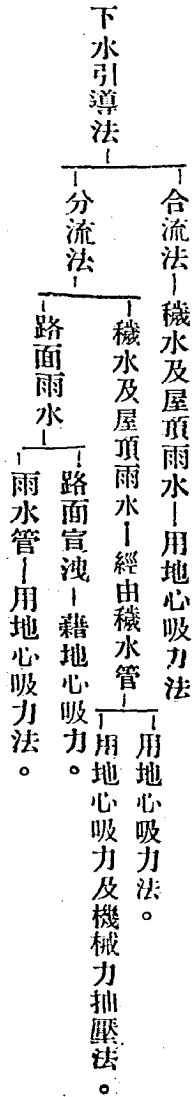 下水引導法
合流法—穢水及屋頂雨水—用地心吸力法
分流法
穢水及屋頂雨水—經由穢水管
用地心吸力法。
用地心吸力及機械力抽壓法。
路面雨水
路面宣洩—藉地心吸力。
雨水管—用地心吸力法。